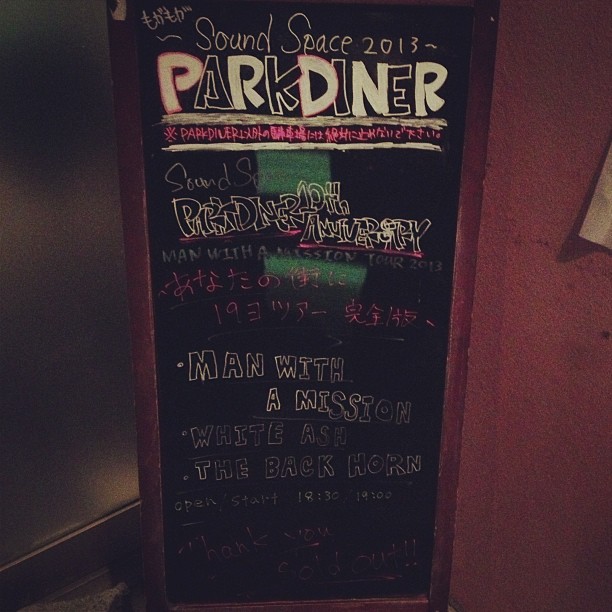 ~ Sound Space 2013 ~
PARKDINER
※ PARKDINER以外の駐車場には絶対に止めないで下さい。
Sound Space
PARKDINER 10th
ANNIVERSARY
MAN WITH A MISSION TOUR 2013
〜あなたの街に
19ヨツアー 完全版〜
・MAN WITH
A MISSION
・WHITE ASH
・THE BACK HORN
open/start 18:30/19:00
Thank you
sold out!!